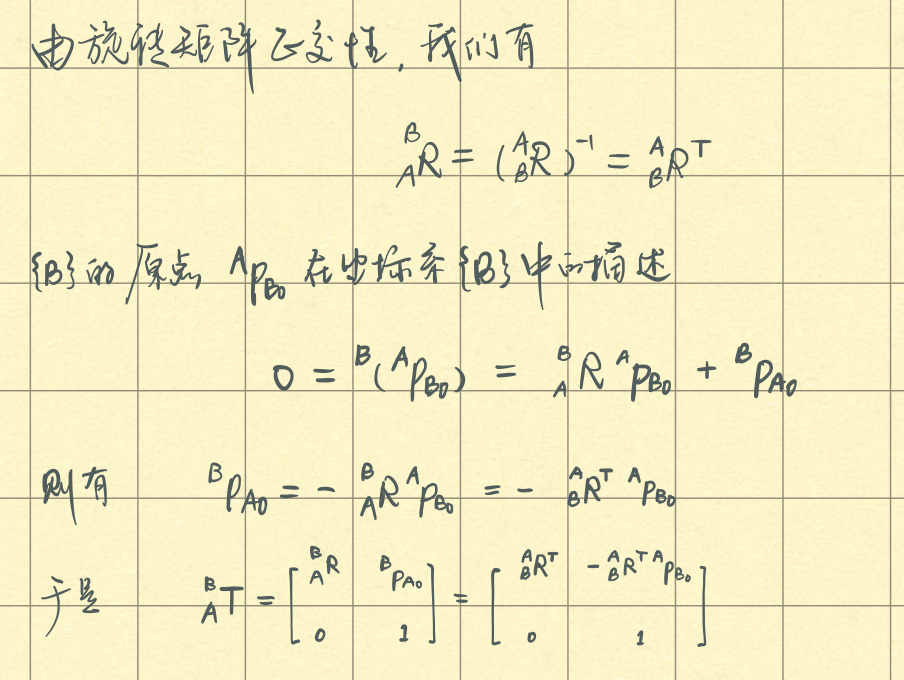 由旋转矩阵正交性，我们有
${}^{B}_{A}R = ({}^{A}_{B}R)^{-1} = {}^{A}_{B}R^{T}$
{B}的原点 ${}^{A}p_{B_0}$ 在坐标系{B}中的描述
$0 = {}^{B}({}^{A}p_{B_0}) = {}^{B}_{A}R\,{}^{A}p_{B_0} + {}^{B}p_{A_0}$
则有 ${}^{B}p_{A_0} = -{}^{B}_{A}R\,{}^{A}p_{B_0} = -{}^{A}_{B}R^{T}\,{}^{A}p_{B_0}$
于是 ${}^{B}_{A}T = \begin{bmatrix} {}^{B}_{A}R & {}^{B}p_{A_0} \\ 0 & 1 \end{bmatrix} = \begin{bmatrix} {}^{A}_{B}R^{T} & -{}^{A}_{B}R^{T}\,{}^{A}p_{B_0} \\ 0 & 1 \end{bmatrix}$